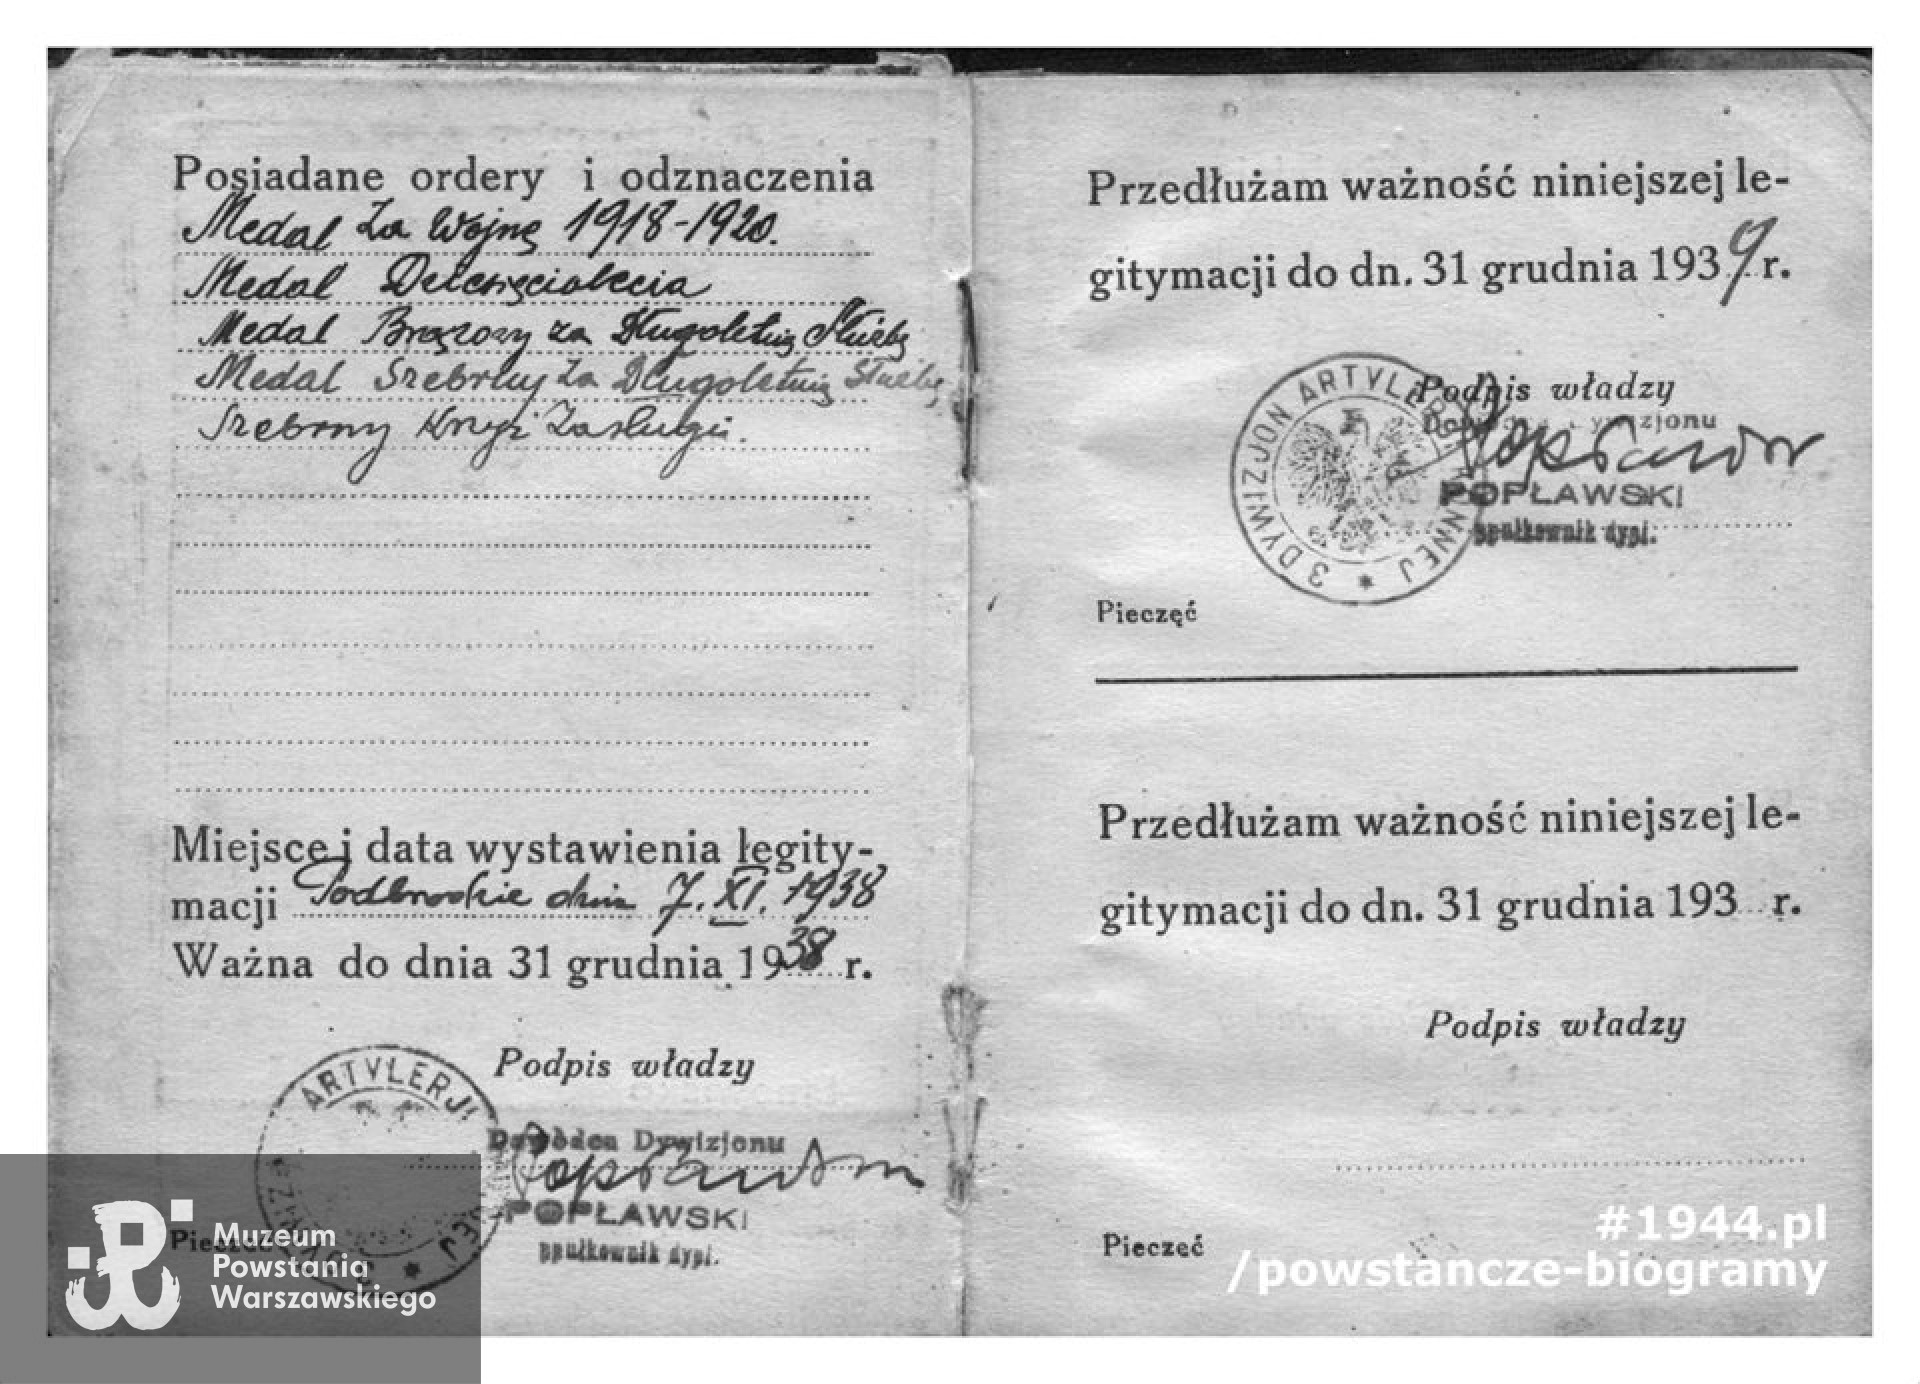 Posiadane ordery i odznaczenia
Medal Za Wojnę 1918-1920.
Medal Dziesięciolecia
Medal Brązowy za Długoletnią Służbę
Medal Srebrny Za Długoletnią Służbę
Srebrny Krzyż Zasługi.
Miejsce i data wystawienia legity-
macji Podbrodzie dnia 7. XI. 1938
Ważna do dnia 31 grudnia 1938 r.
Podpis władzy
ARTYLERJI
Dowódca Dywizjonu
POPŁAWSKI
ppułkownik dypl.
Pieczęć
Przedłużam ważność niniejszej le-
gitymacji do dn. 31 grudnia 1939 r.
Podpis władzy
3 DYWIZJON ARTYLERJI KONNEJ *
Dowódca Dywizjonu
POPŁAWSKI
ppułkownik dypl.
Pieczęć
Przedłużam ważność niniejszej le-
gitymacji do dn. 31 grudnia 193 r.
Podpis władzy
Pieczęć
Muzeum
Powstania
Warszawskiego
#1944.pl
/powstancze-biogramy